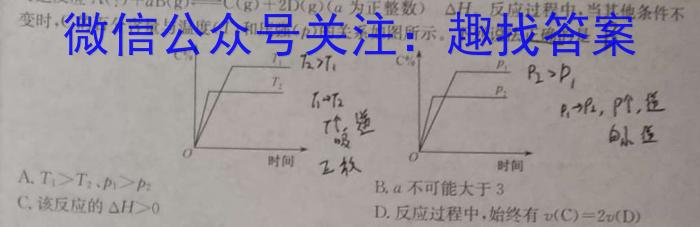 A(?)+aB(g)⇌C(g)+2D(g)(a 为正整数) ΔH, 反应过程中,当其他条件不
变时,
微信公众号关注：趣找答案
C%
T₁
T₂
T₂>T₁
T₁→T₂
T↑, 逆
吸
正放
O
时间
C%
P₁
P₂
P₂>P₁
P₁→P₂, P↑, 逆
O
时间
A. T₁>T₂、p₁>p₂
B. a 不可能大于 3
C. 该反应的 ΔH>0
D. 反应过程中,始终有 v(C)=2v(D)